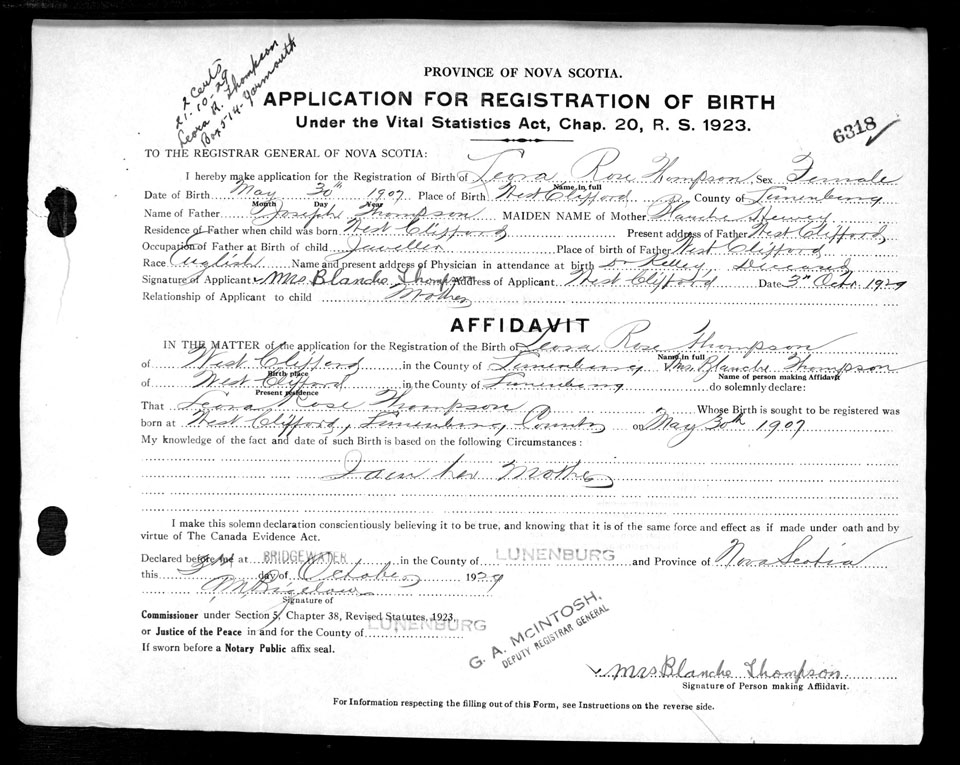 2 Cents
21-10-29
Leora R. Thompson
Box 514-Yarmouth
PROVINCE OF NOVA SCOTIA.
APPLICATION FOR REGISTRATION OF BIRTH
Under the Vital Statistics Act, Chap. 20, R. S. 1923.
6318
TO THE REGISTRAR GENERAL OF NOVA SCOTIA:
I hereby make application for the Registration of Birth of Leora Rose Thompson, Sex Female
Name in full
Date of Birth May 30th 1907 Place of Birth West Clifford County of Lunenburg
Month Day Year
Name of Father Joseph Thompson MAIDEN NAME of Mother Blanche
Residence of Father when child was born West Clifford Present address of Father West Clifford
Occupation of Father at Birth of child Jeweller Place of birth of Father West Clifford
Race English Name and present address of Physician in attendance at birth Dr Kelley
Signature of Applicant Mrs Blanche Thompson Address of Applicant West Clifford Date 3rd Oct. 1929
Relationship of Applicant to child Mother
AFFIDAVIT
IN THE MATTER of the application for the Registration of the Birth of Leora Rose Thompson
Name in full
of West Clifford in the County of Lunenburg, Mrs. Blanche Thompson
Birth place Name of person making Affidavit
of West Clifford in the County of Lunenburg do solemnly declare:
Present residence
That Leora Rose Thompson Whose Birth is sought to be registered was
born at West Clifford, Lunenburg County on May 30th 1907
My knowledge of the fact and date of such Birth is based on the following Circumstances:
I am her Mother
I make this solemn declaration conscientiously believing it to be true, and knowing that it is of the same force and effect as if made under oath and by
virtue of The Canada Evidence Act.
Declared before me at BRIDGEWATER in the County of LUNENBURG and Province of Nova Scotia
this day of October 1929
Signature of
Commissioner under Section 5, Chapter 38, Revised Statutes, 1923,
or Justice of the Peace in and for the County of LUNENBURG
If sworn before a Notary Public affix seal.
G. A. McINTOSH,
DEPUTY REGISTRAR GENERAL
Mrs Blanche Thompson
Signature of Person making Affidavit.
For Information respecting the filling out of this Form, see Instructions on the reverse side.